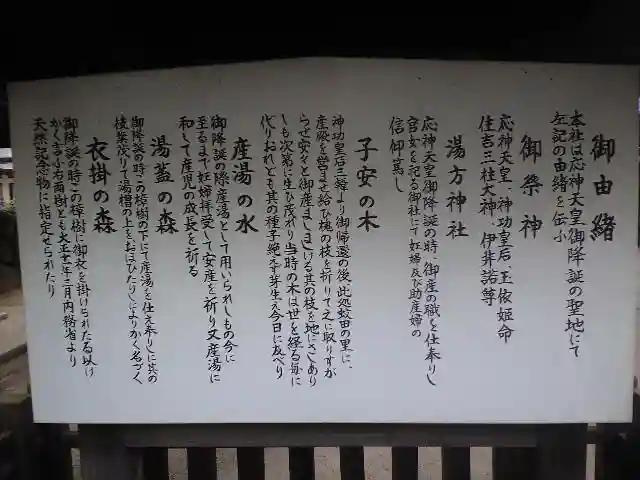 御由緒
本社は応神天皇御降誕の聖地にて
左記の由緒を伝ふ
御祭神
応神天皇、神功皇后、玉依姫命
住吉三柱大神、伊弉諾等
湯方神社
応神天皇御降誕の時、御産の職を仕奉りし
宮女を祀る御社にて妊婦及び助産婦の
信仰篤し
子安の木
神功皇后三韓より御帰還の後、此処蚊田の里に、
産殿を営ませ給ひ槐の枝を折りてえに取りすが
らせ安々と御産ましましける其の枝を地にさしあり
しも次第に生ひ茂れり当時の木は世を経る毎に
代りおれども其の種子絶えず芽生え今日に及べり
産湯の水
御降誕の際産湯として用いられしもの今に
至るまで妊婦拝受して安産を祈り又産湯に
和して産児の成長を祈る
湯蓋の森
御降誕の時この樟樹の下にて産湯を仕え奉りしに其の
枝葉茂りて湯槽の上をおほひたりしによりかく名づく
衣掛の森
御降誕の時この樟樹に御衣を掛けられたる以け
かく申す右両樹とも大正十一年三月内務省より
天然記念物に指定せられたり